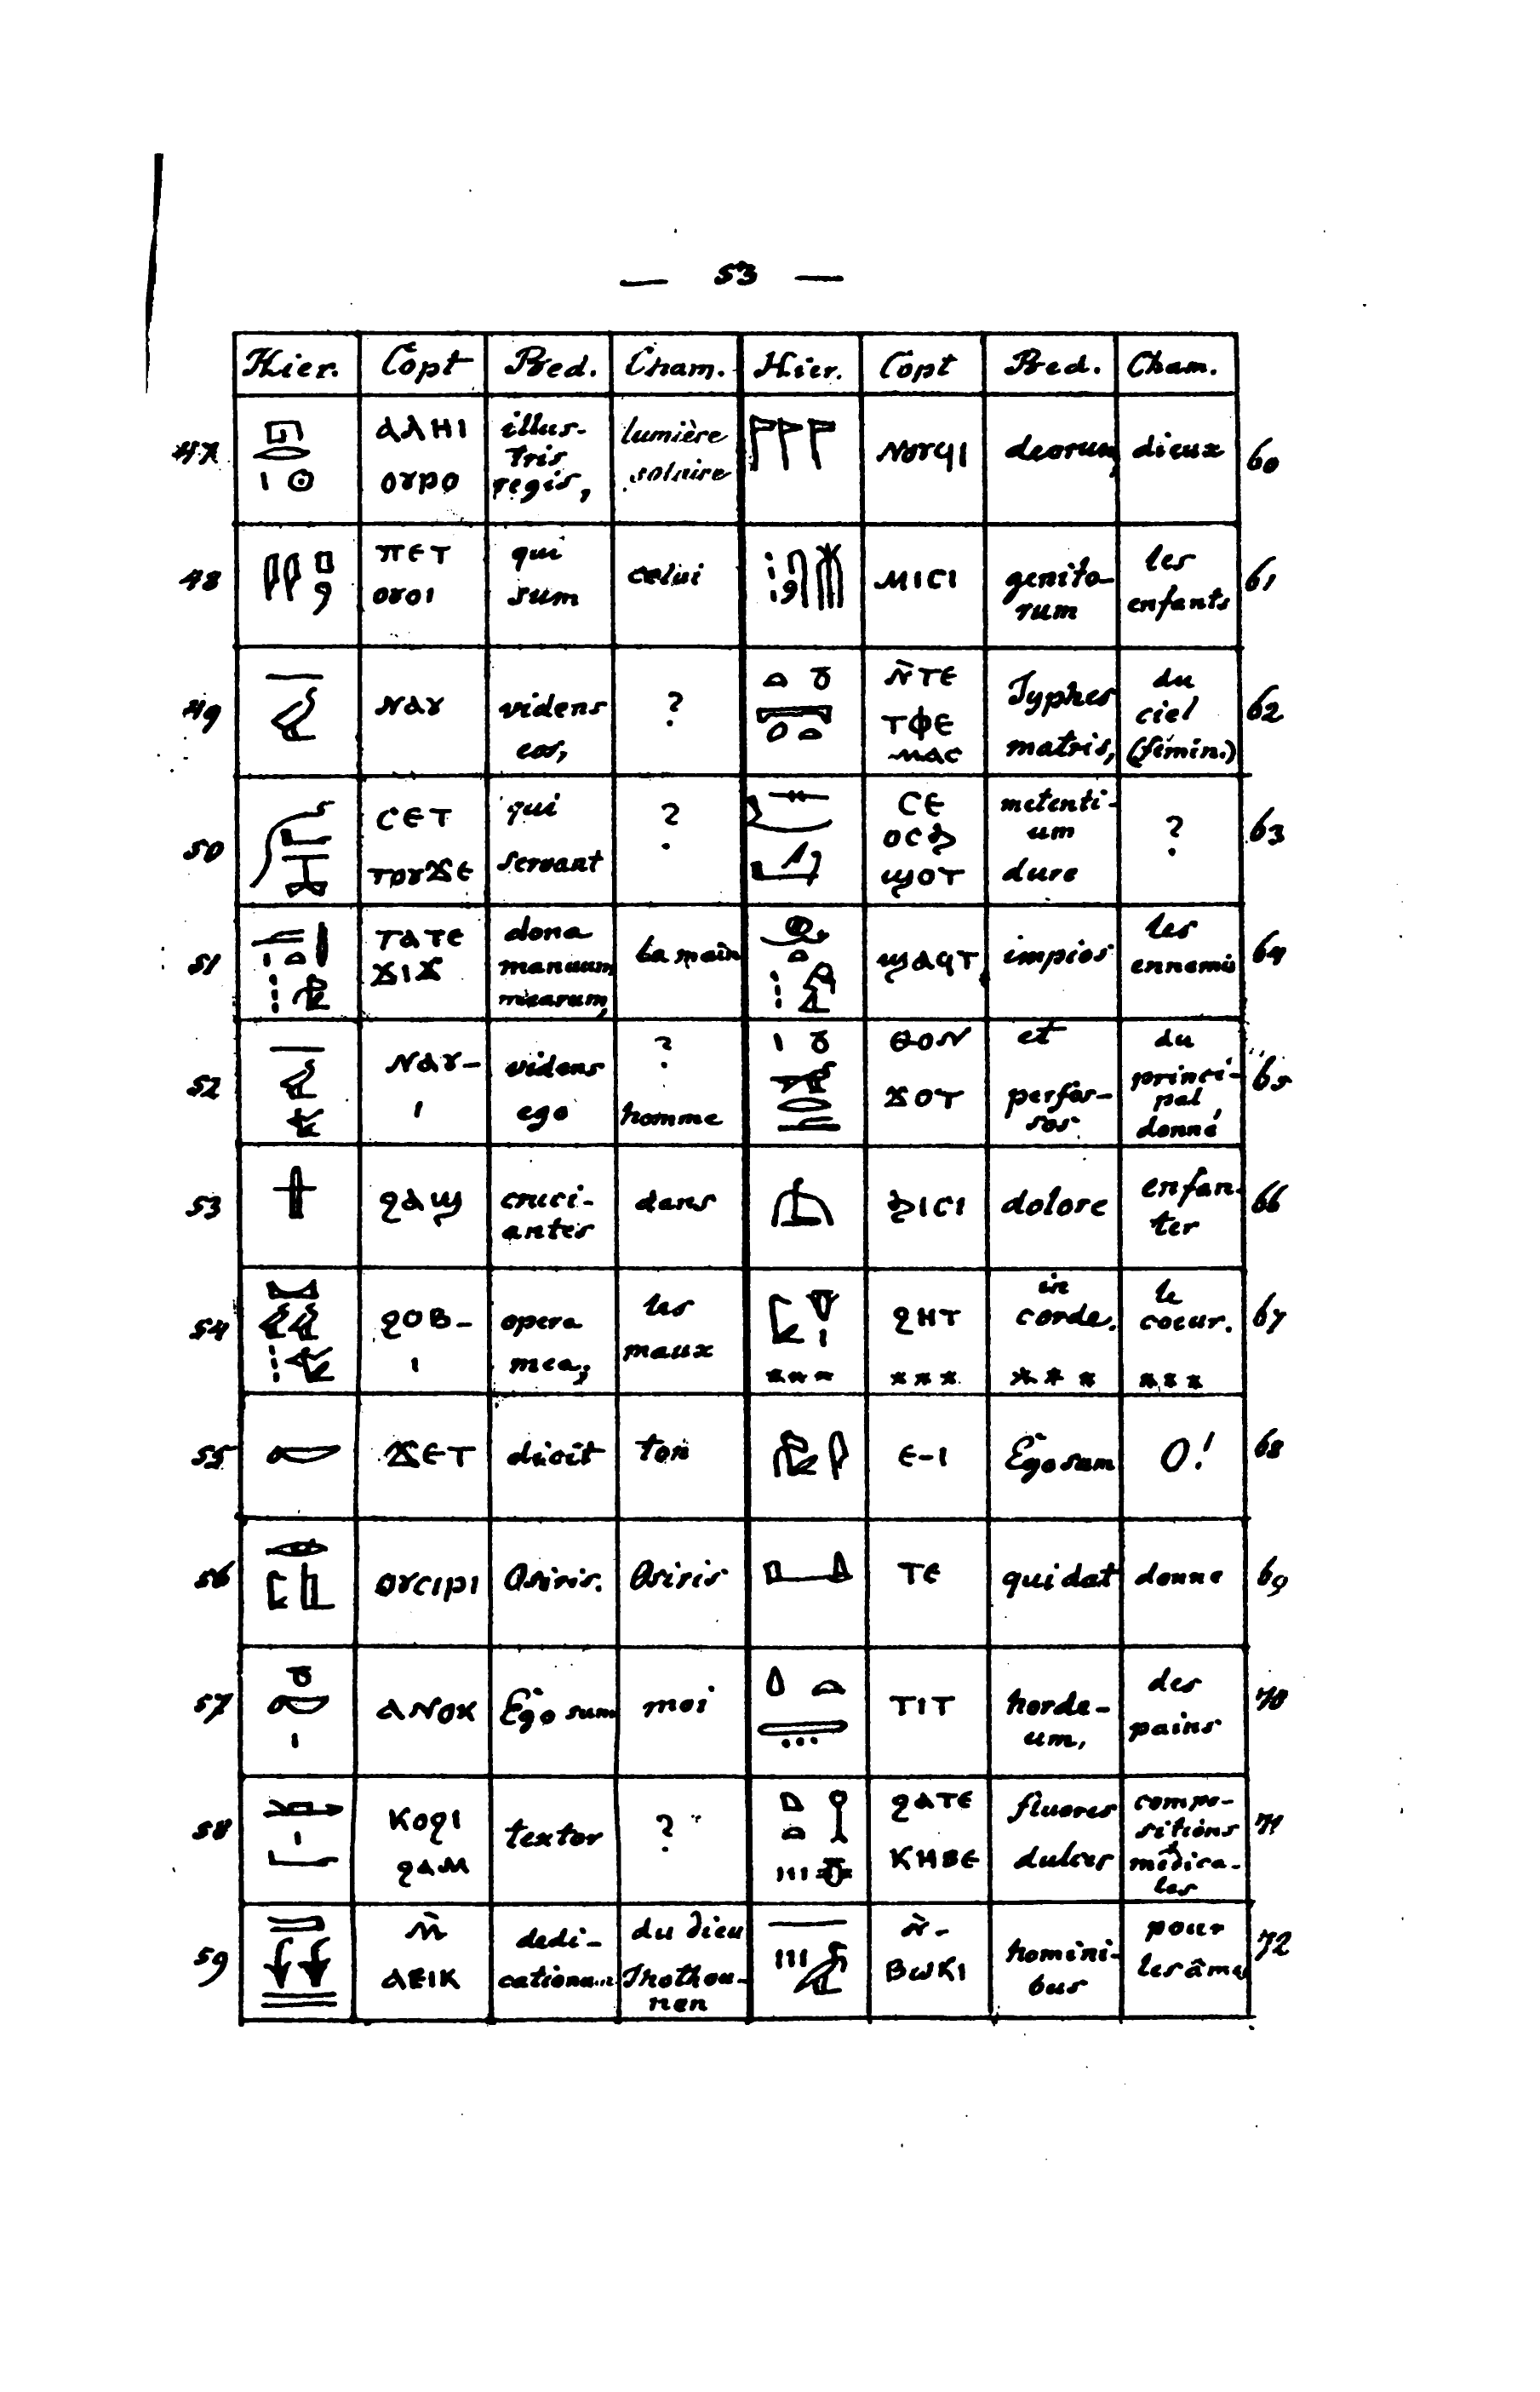 — 53 —
Hier. Copt Bed. Cham. Hier. Copt Bed. Cham.
47 ⲁⲗⲏⲓ ⲟⲩⲣⲟ illus- tris regis, lumière solaire
ⲛⲟⲩϥⲓ deorum, dieux 60
48 ⲡⲉⲧ ⲟⲩⲟⲓ qui sum celui
ⲙⲓⲥⲓ genito- rum les enfants 61
49 ⲛⲁⲩ videns eos, ?
ⲛ̀ⲧⲉ ⲧⲫⲉ ⲙⲁⲥ Typhes matris, du ciel (fémin.) 62
50 ⲥⲉⲧ ⲧⲟⲩϫⲉ qui servant ?
ⲥⲉ ⲟⲥϧ ϣⲟⲧ metenti- um dure ? 63
51 ⲧⲁⲧⲉ ϫⲓϫ dona manuum mearum, la main
ϣⲁϥⲧ impios les ennemis 64
52 ⲛⲁⲩ- ⲓ videns ego ? homme
ⲑⲟⲛ ϫⲟⲧ et perfos- sos du princi- pal, donné 65
53 ϩⲁϣ cruci- antes dans
ϧⲓⲥⲓ dolore enfan- ter 66
54 ϩⲟⲃ- ⲓ opera mea; les maux
ϩⲏⲧ in corde. le coeur. 67
*** *** *** ***
55 ϫⲉⲧ dicit ton
ⲉ-ⲓ Ego sum O! 68
56 ⲟⲩⲥⲓⲣⲓ Osiris. Osiris
ⲧⲉ qui dat donne 69
57 ⲁⲛⲟⲕ Ego sum moi
ⲧⲓⲧ horde- um, des pains 70
58 ⲕⲟϩⲓ ϩⲁⲙ textor ?
ϩⲁⲧⲉ ⲕⲏⲃⲉ fluores dulces compo- sitions médica- les 71
59 ⲙ̀ ⲁⲉⲓⲕ dedi- cationum du dieu Thothou- nen
ⲛ̀- ⲃⲱⲕⲓ homini- bus pour les âmes 72